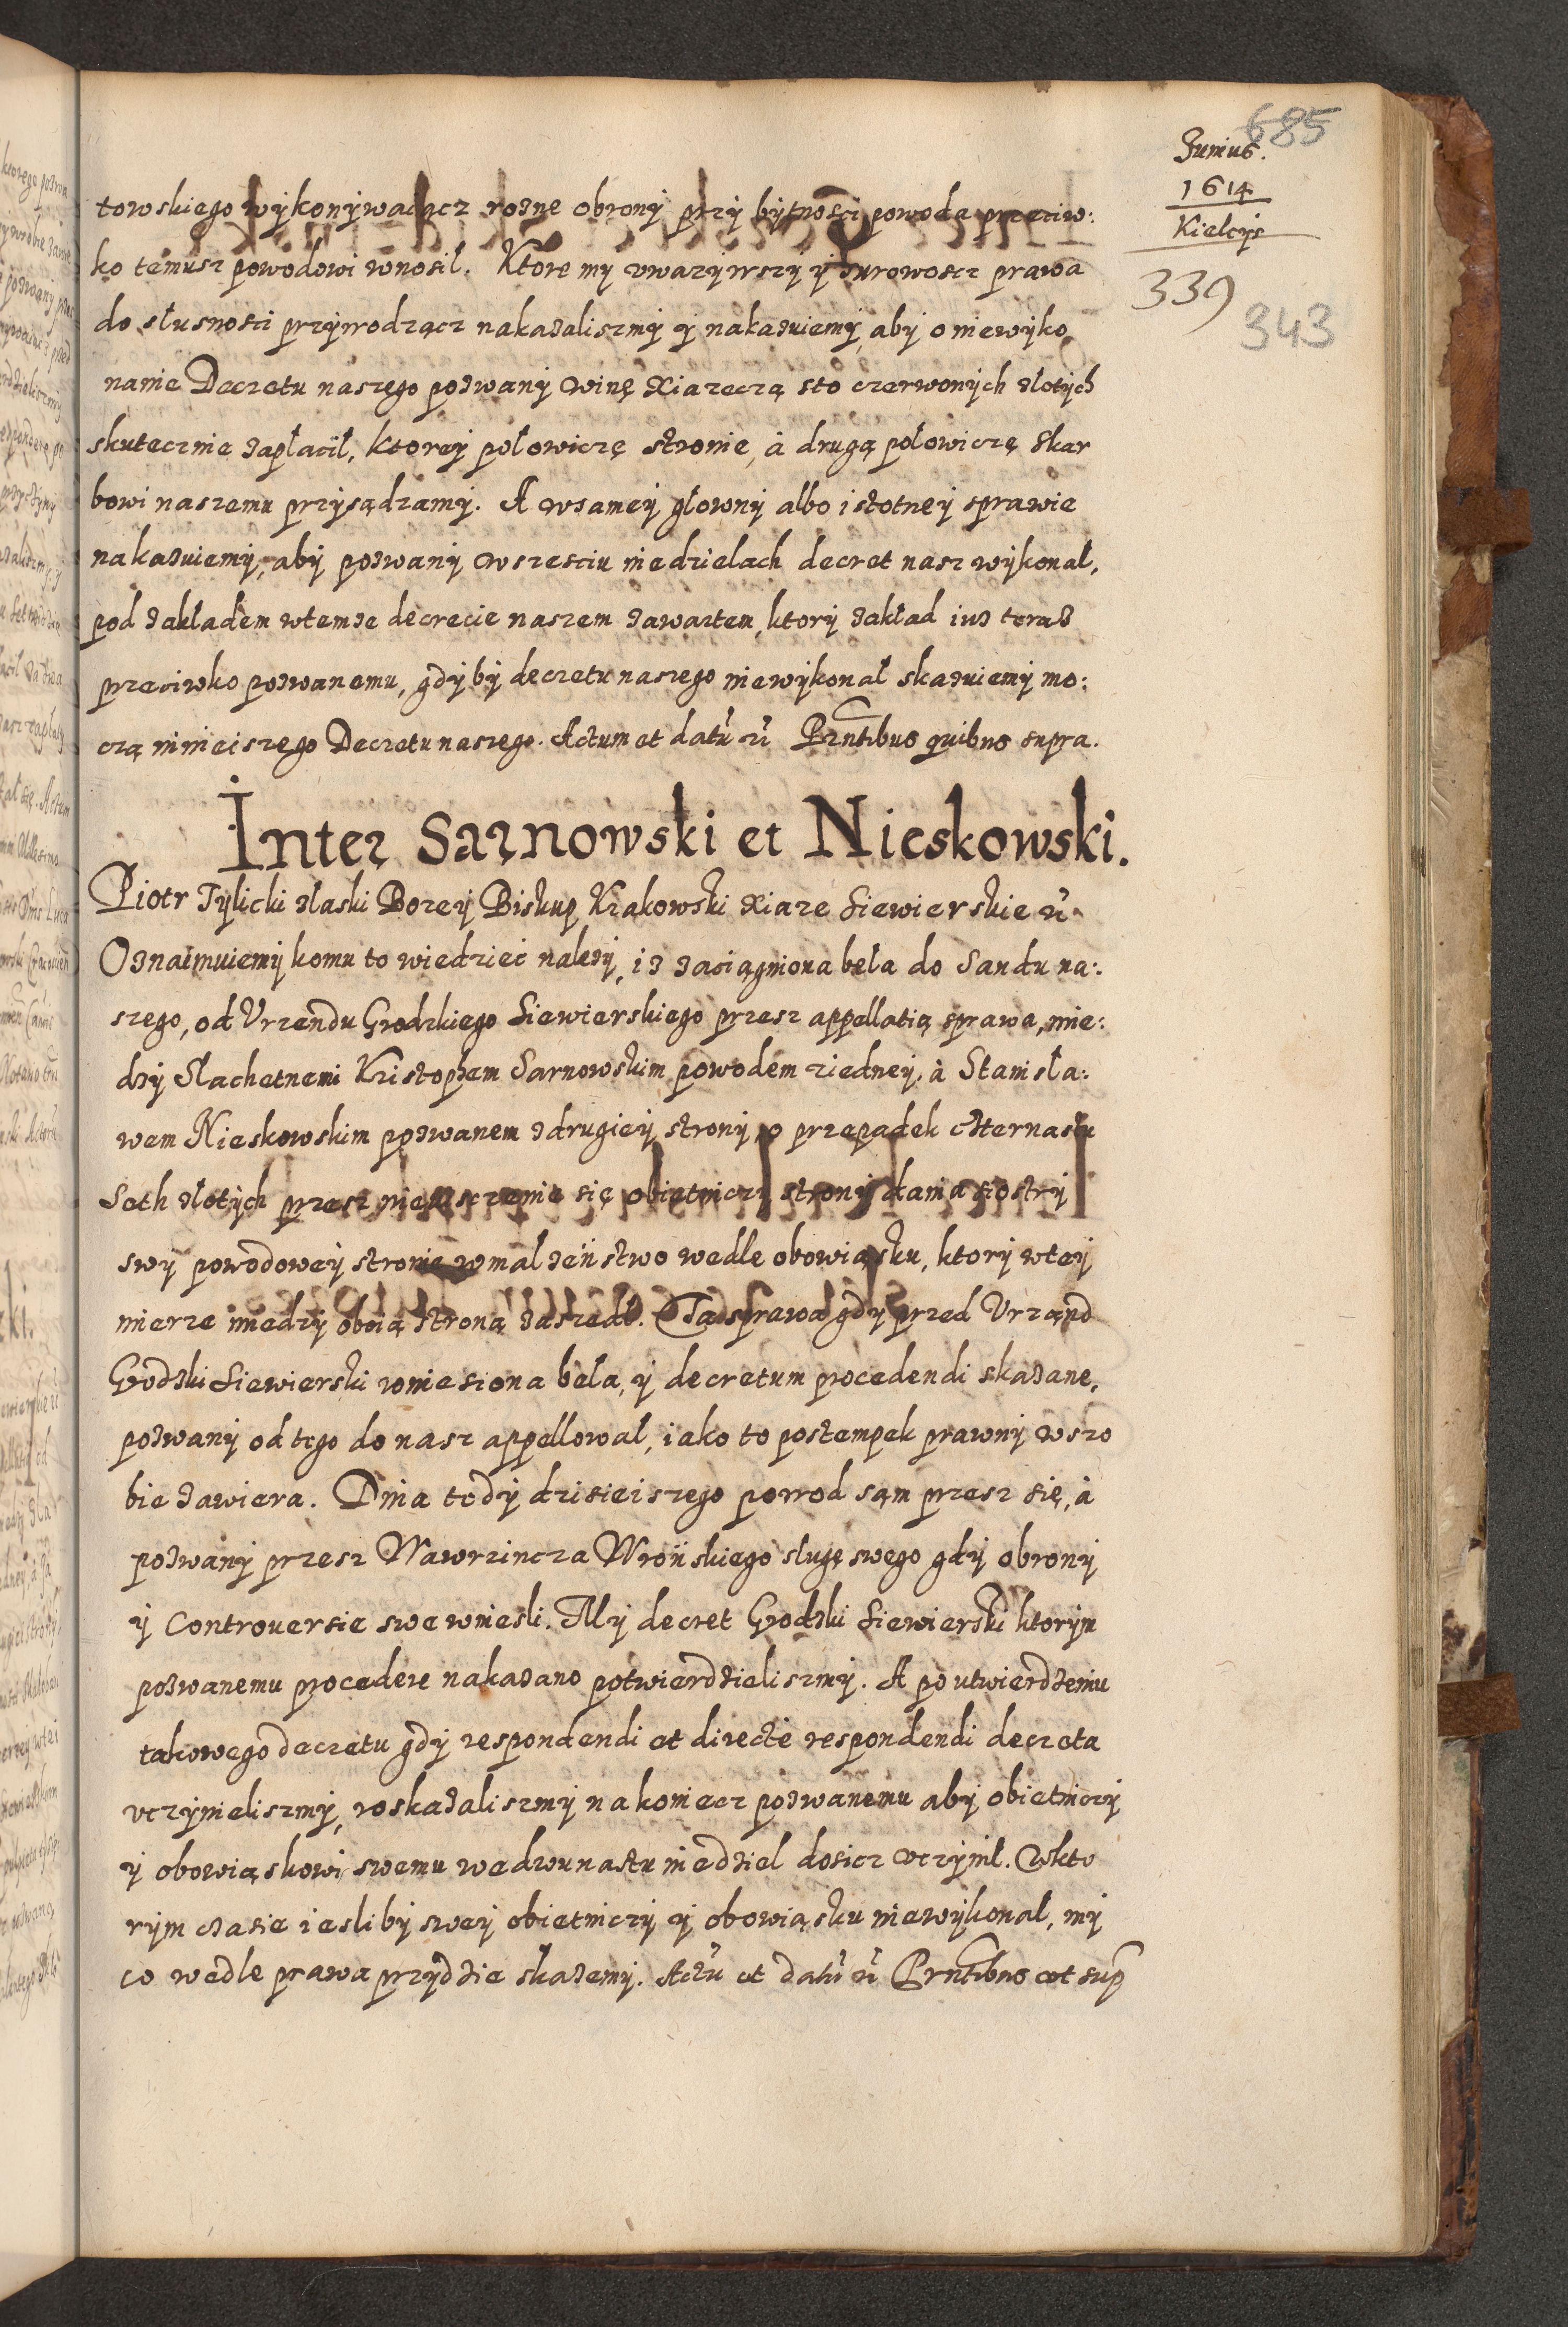 685
Junius.
1614
Kielcijs
339
343
towskiego wykonywaiącz rozne obrony przy bytnosci powoda przeciw:
ko temusz powodowi wnosil. Ktore my uwazywszy y surowoscz prawa
do slusnosti przywodzącz nakazaliszmy y nakazuiemy, aby o niewyko
nanie Decretu naszego pozwany winę Xiazeczą sto czerwonych zlotych
skutecznie zaplacil, ktorey polowiczę stronie, à drugą polowiczę skar
bowi naszemu przysądzamy. A wsamey glowny albo istotney sprawie
nakazuiemy, aby pozwany wszesciu niedzielach decret nasz wykonal,
pod zakladem wtemze decrecie naszem zawartem, ktory zaklad iuz teraz
przeciwko pozwanemu, gdyby decretu naszego niewykonal skazuiemy mo:
czą ninieiszego Decretu naszego. Actum et datũ ũ Prntibus quibus supra.
Inter Sarnowski et Nieskowski.
Piotr Tylicki zlaski Bozey Biskup Krakowski Xiaze Siewierskie ũ
Oznaimuiemy komu to wiedziec nalezy, iz zaciągniona bela do Sandu na:
szego, od Vrzendu Grodzkiego Siewierskiego przesz appellatią sprawa, mie:
dzy Slachetnemi Kristophem Sarnowskim powodem ziedney, à Stanisla:
wem Nieskowskim pozwanem zdrugiey strony, o przepadek czternastu
Seth zlotych przesz nieisczenie się obietniczy strony dania siostry
swy powodowey stronie wmalzeństwo wedle obowiąsku, ktory wtey
mierze miedzy oboią stroną zaszedl. Ta sprawa gdy przed Vrzand
Grodzki Siewierski wniesiona bela, y decretum procedendi skazane,
pozwany od tego do nasz appellowal, iako to postempek prawny wszo
bie zawiera. Dnia tedy dzisieiszego powod sąm przesz się, à
pozwany przesz Wawrzincza Wrońskiego slugę swego gdy obrony
y Controuersie swe wniesli. My decret Grodzki Siewierski ktorym
pozwanemu procedere nakazano potwierdzieliszmy. A po utwierdzeniu
takowego decretu gdy respondendi et directe respondendi decreta
vczynieliszmy, roskazaliszmy nakoniecz pozwanemu aby obietniczy
y obowiąskowi swemu wedwunastu niedziel dosicz vczynil. Wkto
rym czasie iesliby swey obietniczy y obowiąsku niewykonal, my
co wedle prawa przydzie skazemy. Actũ et datũ ũ Prntibus vt sup